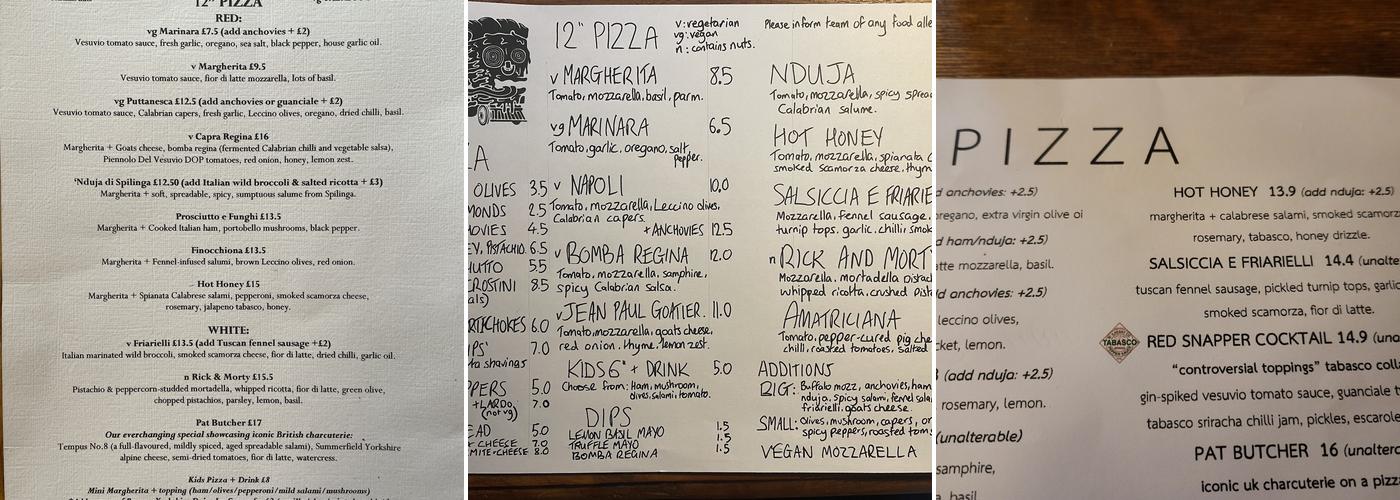 12" PIZZA
RED:
vg Marinara £7.5 (add anchovies + £2)
Vesuvio tomato sauce, fresh garlic, oregano, sea salt, black pepper, house garlic oil.
v Margherita £9.5
Vesuvio tomato sauce, fior di latte mozzarella, lots of basil.
vg Puttanesca £12.5 (add anchovies or guanciale + £2)
Vesuvio tomato sauce, Calabrian capers, fresh garlic, Leccino olives, oregano, dried chilli, basil.
v Capra Regina £16
Margherita + Goats cheese, bomba regina (fermented Calabrian chilli and vegetable salsa),
Piennolo Del Vesuvio DOP tomatoes, red onion, honey, lemon zest.
'Nduja di Spilinga £12.50 (add Italian wild broccoli & salted ricotta + £3)
Margherita + soft, spreadable, spicy, sumptuous salume from Spilinga.
Prosciutto e Funghi £13.5
Margherita + Cooked Italian ham, portobello mushrooms, black pepper.
Finocchiona £13.5
Margherita + Fennel-infused salumi, brown Leccino olives, red onion.
Hot Honey £15
Margherita + Spianata Calabrese salami, pepperoni, smoked scamorza cheese,
rosemary, jalapeno tabasco, honey.
WHITE:
v Friarielli £13.5 (add Tuscan fennel sausage +£2)
Italian marinated wild broccoli, smoked scamorza cheese, fior di latte, dried chilli, garlic oil.
n Rick & Morty £15.5
Pistachio & peppercorn-studded mortadella, whipped ricotta, fior di latte, green olive,
chopped pistachios, parsley, lemon, basil.
Pat Butcher £17
Our everchanging special showcasing iconic British charcuterie:
Tempus No.8 (a full-flavoured, mildly spiced, aged spreadable salami), Summerfield Yorkshire
alpine cheese, semi-dried tomatoes, fior di latte, watercress.
Kids Pizza + Drink £8
Mini Margherita + topping (ham/olives/pepperoni/mild salami/mushrooms)
12" PIZZA
v: vegetarian
vg: vegan
n: contains nuts.
Please inform team of any food alle
v MARGHERITA 8.5
Tomato, mozzarella, basil, parm.
vg MARINARA 6.5
Tomato, garlic, oregano, salt,
pepper.
v NAPOLI 10.0
Tomato, mozzarella, Leccino olives,
Calabrian capers.
+ ANCHOVIES 12.5
v BOMBA REGINA 12.0
Tomato, mozzarella, samphire,
spicy Calabrian salsa.
v JEAN PAUL GOATIER. 11.0
Tomato, mozzarella, goats cheese,
red onion, thyme, lemon zest.
KIDS 6" + DRINK 5.0
Choose from: Ham, mushroom,
olives, salami, tomato.
DIPS
LEMON BASIL MAYO 1.5
TRUFFLE MAYO 1.5
BOMBA REGINA 1.5
A
OLIVES 3.5
MONDS 2.5
HOVIES 4.5
EY, PISTACHIO. 6.5
IUTTO 5.5
CROSTINI 8.5
als)
ARTICHOKES 6.0
IPS' 7.0
ta shavings
PPERS 5.0
+LARDO 7.0
(not vg)
EAD 5.0
+ CHEESE 7.0
MITE+CHEESE 8.0
NDUJA
Tomato, mozzarella, spicy sprea
Calabrian salume.
HOT HONEY
Tomato, mozzarella, spianata C
smoked scamorza cheese, thym
SALSICCIA E FRIARIE
Mozzarella, fennel sausage,
turnip tops, garlic, chilli, smok
n RICK AND MORT
Mozzarella, mortadella, pistach
whipped ricotta, crushed pist
AMATRICIANA
Tomato, pepper-cured pig che
chilli, roasted tomatoes, salted
ADDITIONS
BIG: Buffalo mozz, anchovies, ham
nduja, spicy salami, fennel sala
friarielli, goats cheese.
SMALL: Olives, mushroom, capers, on
spicy peppers, roasted tom
VEGAN MOZZARELLA
PIZZA
d anchovies: +2.5)
oregano, extra virgin olive oi
d ham/nduja: +2.5)
tte mozzarella, basil.
ld anchovies: +2.5)
leccino olives,
ket, lemon.
(add nduja: +2.5)
rosemary, lemon.
(unalterable)
samphire,
a, basil
HOT HONEY 13.9 (add nduja: +2.5)
margherita + calabrese salami, smoked scamorz
rosemary, tabasco, honey drizzle.
SALSICCIA E FRIARIELLI 14.4 (unalte
tuscan fennel sausage, pickled turnip tops, garlic
smoked scamorza, fior di latte.
TABASCO
RED SNAPPER COCKTAIL 14.9 (una
"controversial toppings" tabasco coll
gin-spiked vesuvio tomato sauce, guanciale
tabasco sriracha chilli jam, pickles, escarole
PAT BUTCHER 16 (unaltera
iconic uk charcuterie on a pizz